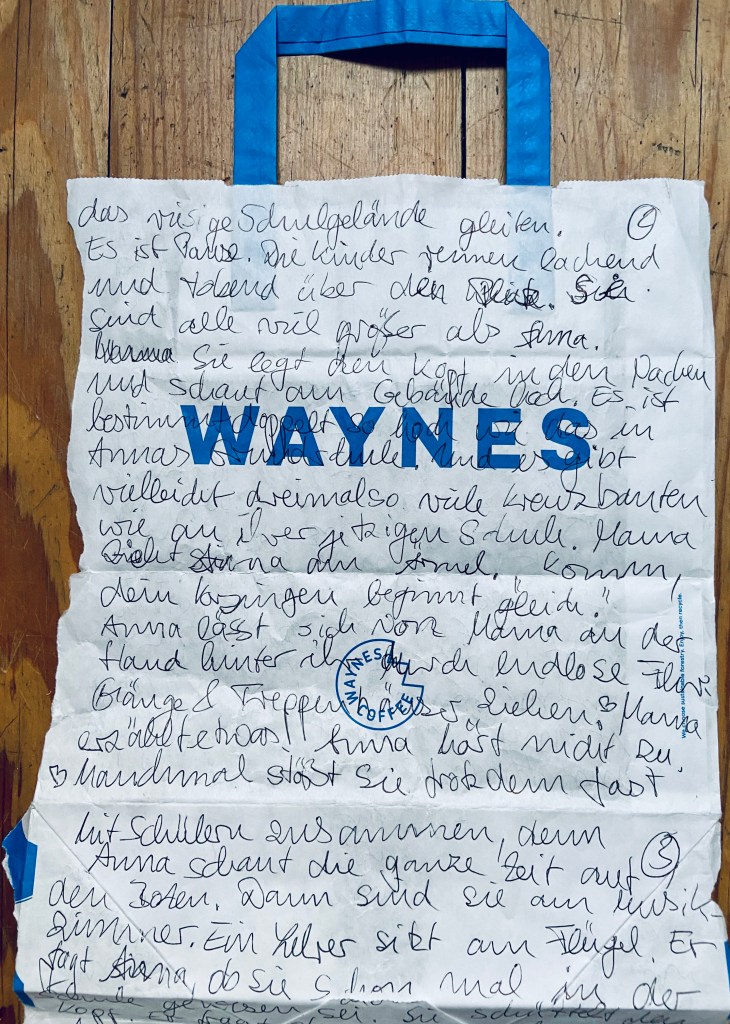 das riesige Schulgelände gleiten.
Es ist Pause. Die Kinder rennen lachend
und tobend über den Platz. Sie
sind alle viel größer als Anna.
Sie legt den Kopf in den Nacken
und schaut am Gebäude hoch. Es ist
bestimmt doppelt so hoch wie das in
WAYNES
Annas Grundschule. Und es gibt
vielleicht dreimal so viele
wie an ihrer jetzigen Schule. Mama
zieht Anna am Ärmel. "Komm,
dein Vorsingen beginnt gleich."
Anna lässt sich von Mama an der
Hand hinter ihr durch endlose
Gänge & Treppenhäuser ziehen. Mama
WAYNES COFFEE
We choose sustainable forestry. Enjoy, then recycle.
erzählt etwas. Anna hört nicht zu.
♡ Manchmal stößt sie trotzdem fast
mit Schülern zusammen, denn
③
Anna schaut die ganze Zeit auf
den Boden. Dann sind sie am Musik-
zimmer. Ein Lehrer sitzt am Flügel. Er
fragt Anna, ob sie schon mal in der
Schule gewesen sei. Sie schüttelt den